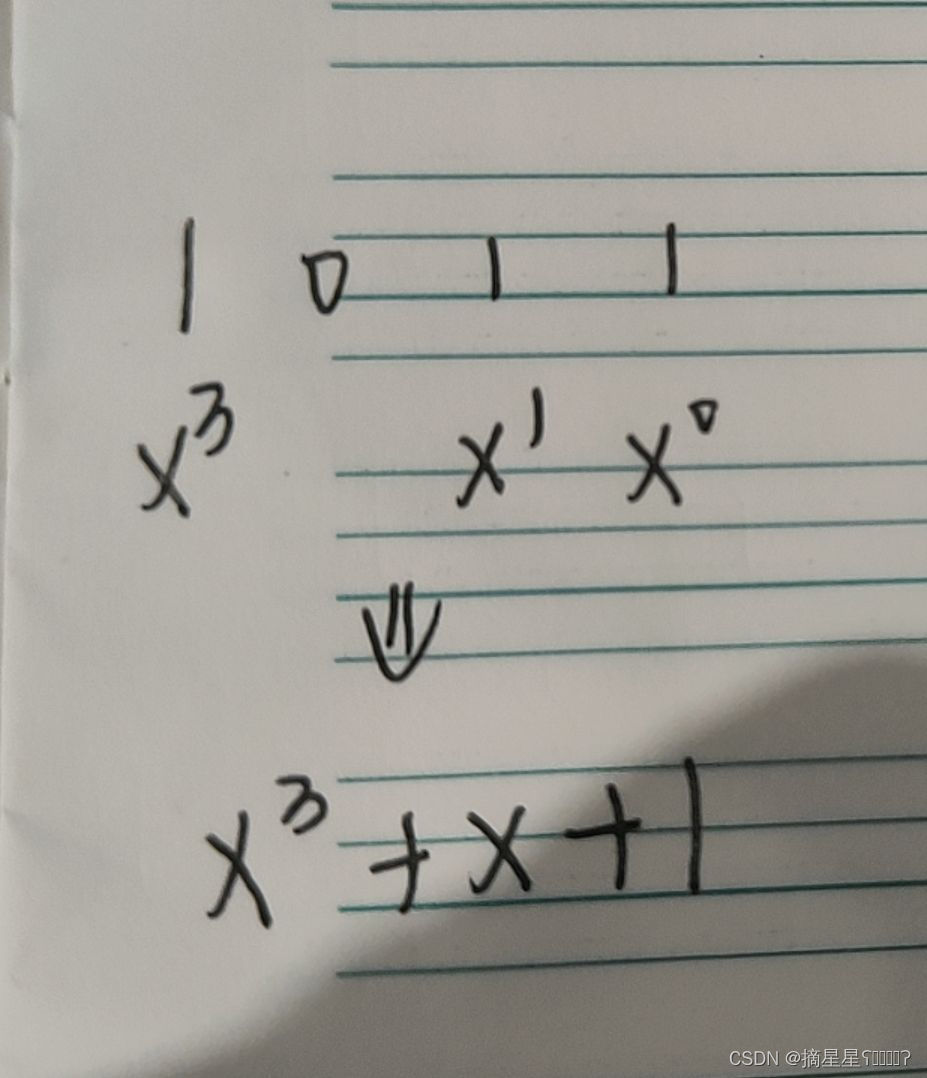 1 0 1 1
x³ x¹ x⁰
⇓
x³+x+1
CSDN @摘星星ʕ